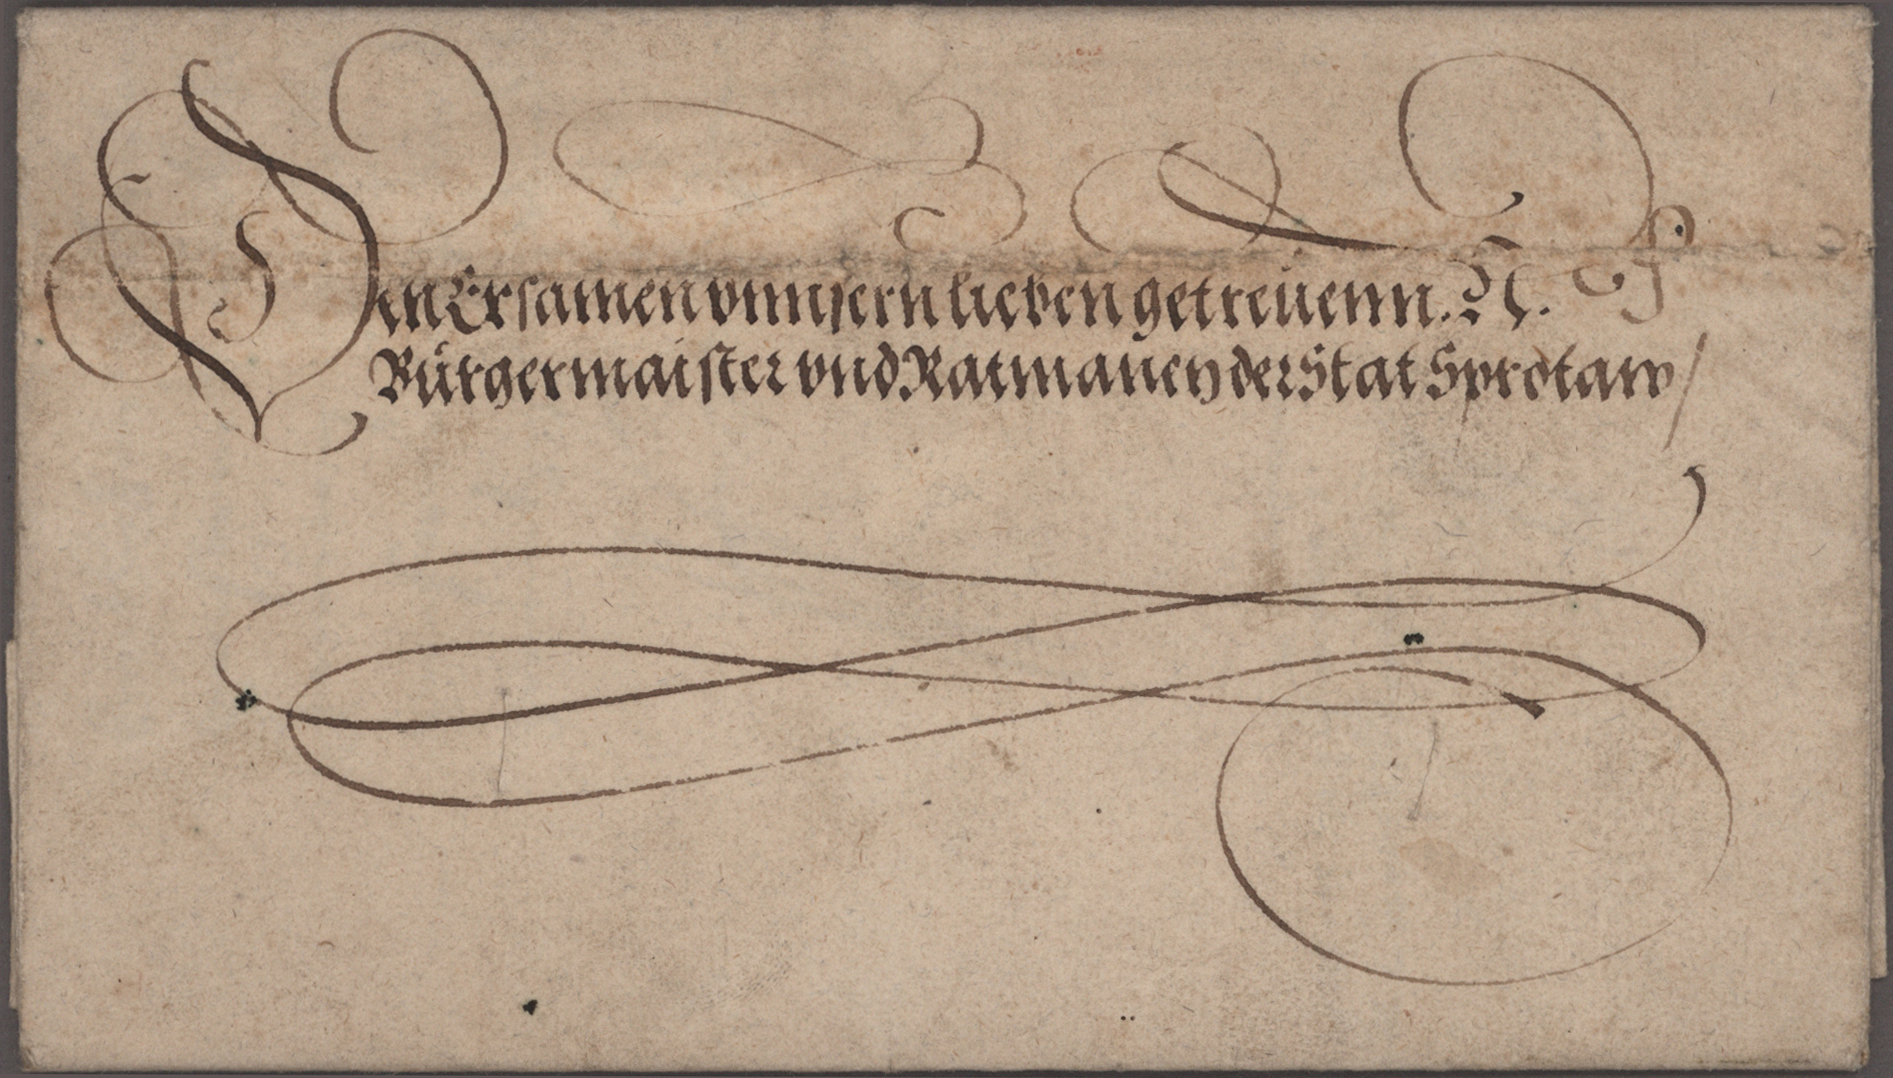 Den Ersamen vnnsern lieben getreuenn. N.
Bürgermaister vnd Ratmanen der Stat Sprotaw /